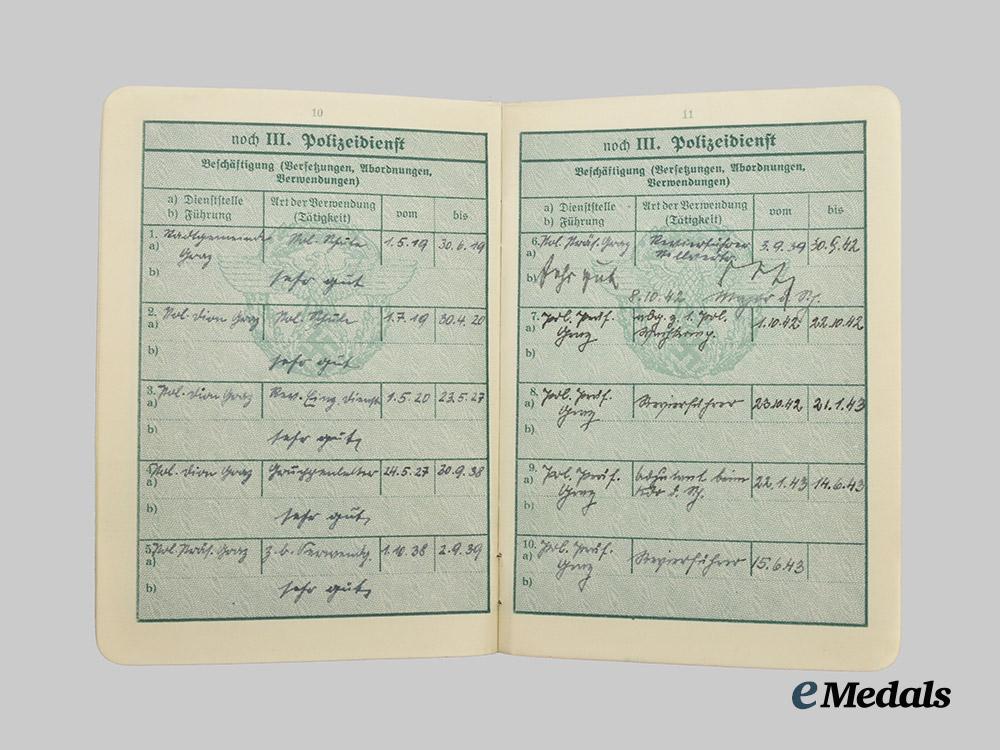 10
noch III. Polizeidienst
Beschäftigung (Versetzungen, Abordnungen,
Verwendungen)
a) Dienststelle
b) Führung
Art der Verwendung
(Tätigkeit)
vom
bis
1. Stadtgemeinde Pol. Schule 1.5.19 30.6.19
a) Graz
b) sehr gut
2. Pol. Dion Graz Pol. Schule 1.7.19 30.4.20
a)
b) sehr gut
3. Pol. Dion Graz Rev. Eing. Dienst 1.5.20 23.5.27
a)
b) sehr gut
4. Pol. Dion Graz Gruppenleiter 24.5.27 30.9.38
a)
b) sehr gut
5. Pol. Präs. Graz z. b. Verwendg. 1.10.38 2.9.39
a)
b) sehr gut
11
noch III. Polizeidienst
Beschäftigung (Versetzungen, Abordnungen,
Verwendungen)
a) Dienststelle
b) Führung
Art der Verwendung
(Tätigkeit)
vom
bis
6. Pol. Präs. Graz Revierführer 3.9.39 30.9.42
a)
b) Sehr gut
8.10.42 Major d. Sch.
7. Pol. Präs. 1. Pol. 1.10.42 22.10.42
a) Graz
b)
8. Pol. Präs. Revierführer 23.10.42 21.1.43
a) Graz
b)
9. Pol. Präs. Adjutant beim 22.1.43 14.6.43
a) Graz Kdr d. Sch.
b)
10. Pol. Präs. Revierführer 15.6.43
a) Graz
b)
eMedals